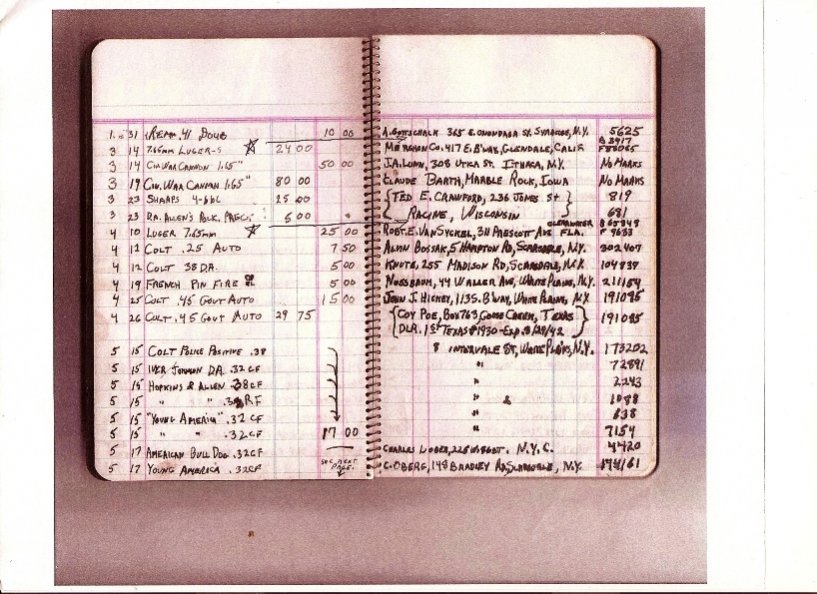 1 31 Rem. 41 Doub 10 00 A. Gottschalk 365 E. Onondaga St. Syracuse, N.Y. 5625
3 14 7.65mm Luger-S 24 00 Merchon Co. 417 E. B'way, Glendale, Calif
3 14 Civ. War Cannon 1.65" 50 00 J.A. Lown, 308 Utica St. Ithaca, N.Y. No Marks
3 19 Civ. War Cannon 1.65" 80 00 Claude Barth, Marble Rock, Iowa No Marks
3 23 Sharps 4-bbl 25 00 Ted E. Crawford, 236 Jones St 819
3 23 Dr. Allen's 6 00 Racine, Wisconsin 681
4 10 Luger 7.65mm 25 00 Robt. E. VanSyckel, 311 Prescott Ave Clearwater Fla. F 9633
4 12 Colt .25 Auto 7 50 Alvin Bossak, 5 Hampton Rd, Scarsdale, N.Y. 302407
4 12 Colt 38 DA. 5 00 Knute, 255 Madison Rd, Scarsdale, N.Y. 104839
4 19 French Pin Fire 5 00 Nussbaum, 44 Waller Ave, White Plains, N.Y. 211154
4 25 Colt .45 Govt Auto 15 00 John J. Hickey, 113 S. B'way, White Plains, N.Y. 191085
4 26 Colt .45 Govt Auto 29 75 Coy Poe, Box 763, Goose Creek, Texas 191085
DLR. 1st Texas #1930-Exp. 8/28/42
5 15 Colt Police Positive .38 8 Intervale St, White Plains, N.Y. 173202
5 15 Iver Johnson DA. .32 CF " 72891
5 15 Hopkins & Allen .38 CF " 2243
5 15 " " RF " 1088
5 15 "Young America" .32 CF " 638
5 15 " " .32 CF 17 00 " 7154
5 17 American Bull Dog .32 CF Charles N.Y.C. 4420
5 17 Young America .32 CF See next page. C. Oberg, 148 Bradley Rd, Scarsdale, N.Y. 174161